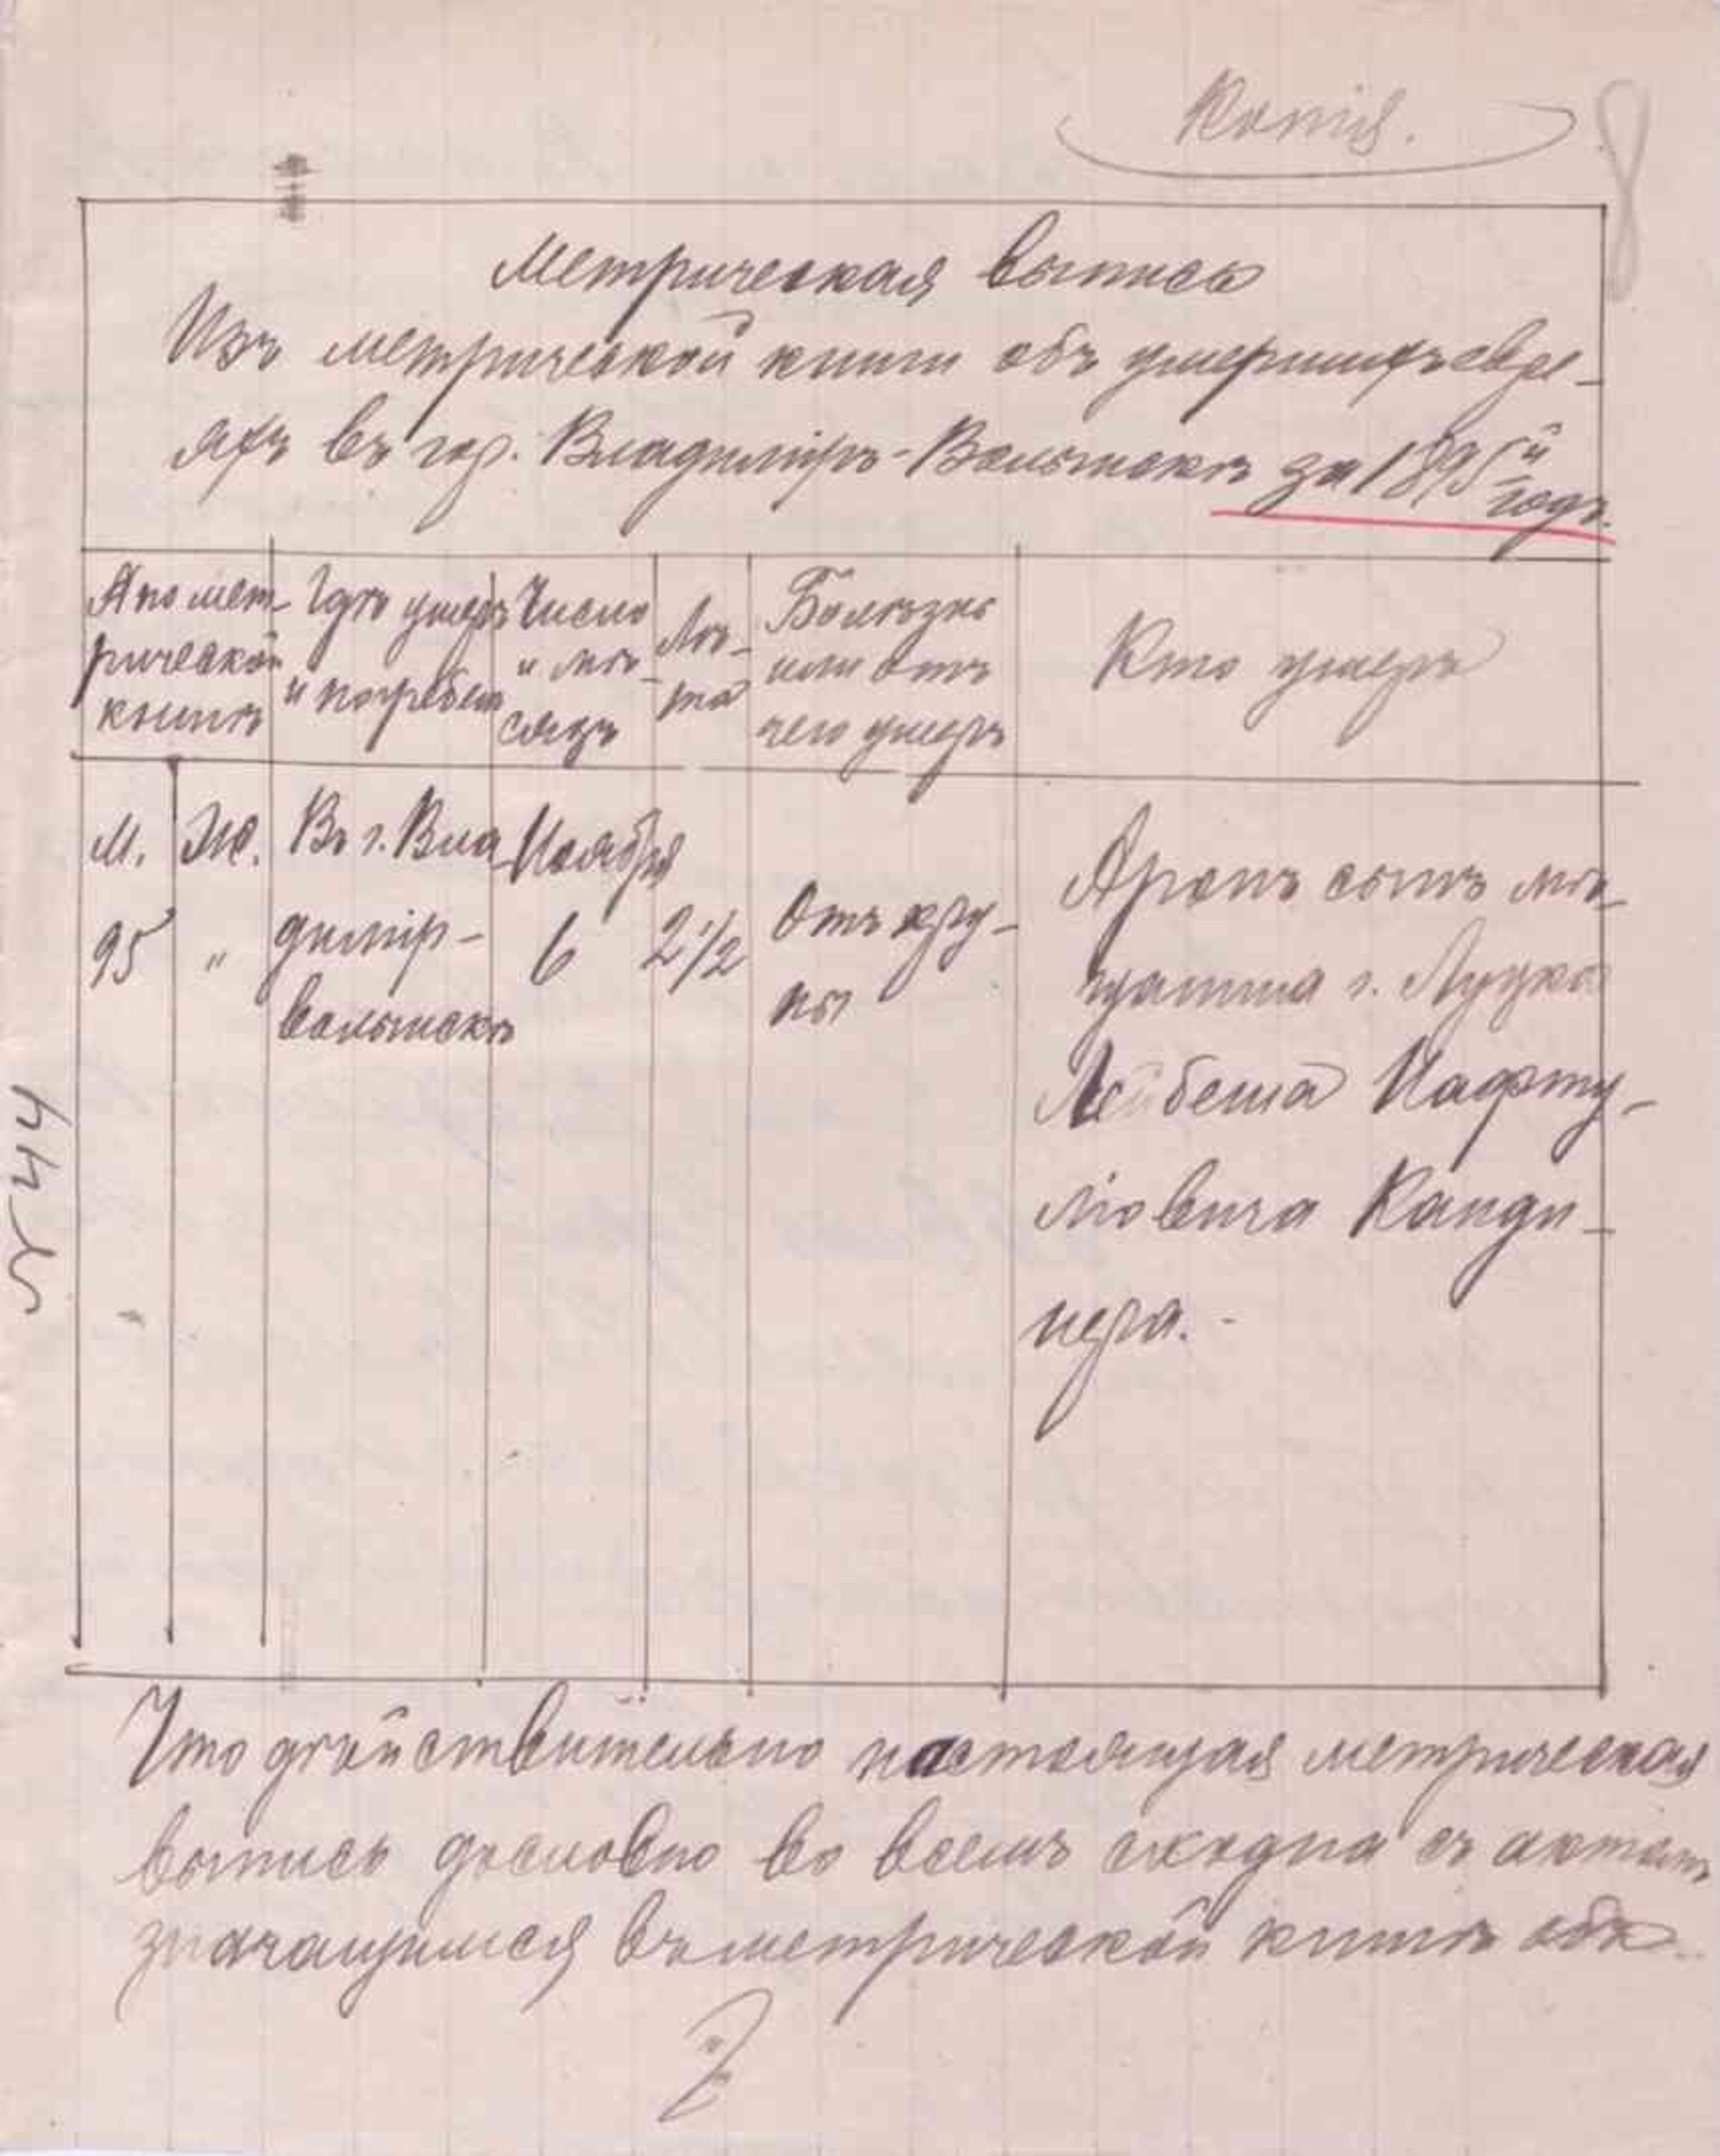 Копія.
8
Метрическая выпись
Изъ метрической книги объ умершихъ евре-
яхъ въ гор. Владиміръ-Волынскѣ за 1895й
годъ.
№ по мет-
рической
книгѣ
Гдѣ умеръ
и погребенъ
Число
и мѣ-
сяцъ
Лѣ-
та
Болѣзнь
или отъ
чего умеръ
Кто умеръ
М. Ж.
95 "
Въ г. Вла
димір-
волынскѣ
Ноября
6
2 1/2
Отъ кру-
пы
Аронъ сынъ мѣ-
щанина г. Луцка
Лейбеша Нафту-
ліовича Канди-
нера.-
Что дѣйствительно настоящая метрическая
выпись дословно во всемъ сходна съ актомъ
значащимся въ метрической книгѣ объ